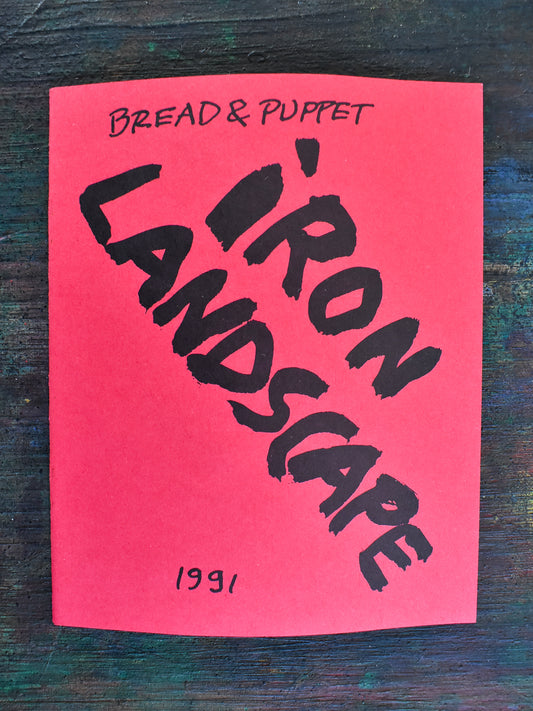 BREAD & PUPPET
iRON
LANDSCAPE
1991